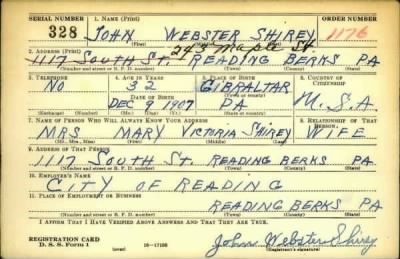 SERIAL NUMBER 1. NAME (Print) ORDER NUMBER
328 JOHN WEBSTER SHIREY 1176
(First) (Middle) (Last)
243 Maple St.
2. ADDRESS (Print)
1117 SOUTH ST. READING BERKS PA
(Number and street or R. F. D. number) (Town) (County) (State)
3. TELEPHONE 4. AGE IN YEARS 5. PLACE OF BIRTH 6. COUNTRY OF CITIZENSHIP
NO 32 GIBRALTAR U.S.A.
DATE OF BIRTH (Town or county)
DEC 9 1907 PA
(Exchange) (Number) (Mo.) (Day) (Yr.) (State or country)
7. NAME OF PERSON WHO WILL ALWAYS KNOW YOUR ADDRESS 8. RELATIONSHIP OF THAT PERSON
MRS MARY VICTORIA SHIREY WIFE
(Mr., Mrs., Miss) (First) (Middle) (Last)
9. ADDRESS OF THAT PERSON
1117 SOUTH ST. READING BERKS PA
(Number and street or R. F. D. number) (Town) (County) (State)
10. EMPLOYER'S NAME
CITY OF READING
11. PLACE OF EMPLOYMENT OR BUSINESS
READING BERKS PA
(Number and street or R. F. D. number) (Town) (County) (State)
I AFFIRM THAT I HAVE VERIFIED ABOVE ANSWERS AND THAT THEY ARE TRUE.
REGISTRATION CARD
D. S. S. Form 1 (over) 16-17105 John Webster Shirey
(Registrant's signature)